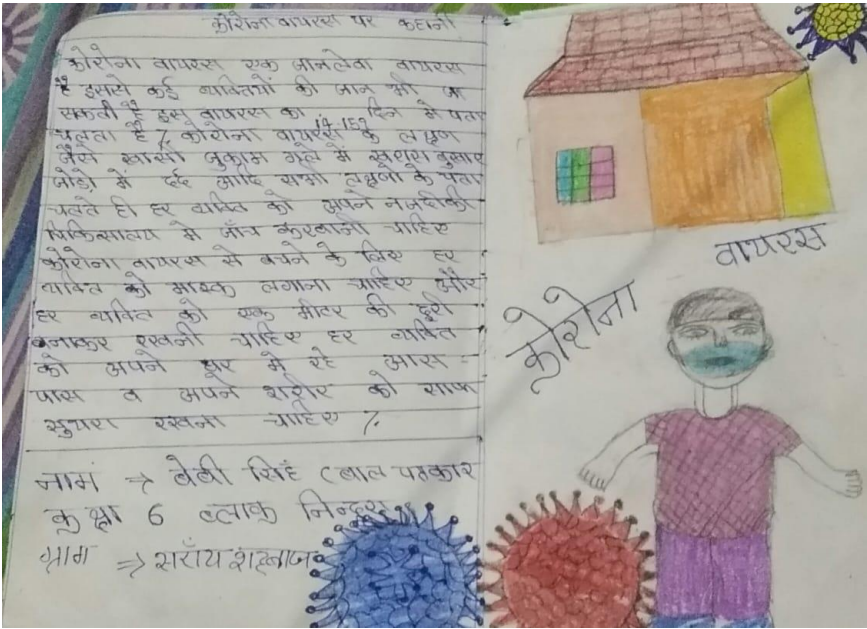 कोरोना वायरस पर कहानी
कोरोना वायरस एक जानलेवा वायरस
है इससे कई व्यक्तियों की जान भी जा
सकती है इस वायरस का 14-15 दिन में पता
चलता है /. कोरोना वायरस के लक्षण
जैसे खासी जुकाम गले में खुधरा बुखार
जोड़ो में दर्द आदि सभी लक्षणों के पता
चलते ही हर व्यक्ति को अपने नजदीकी
चिकित्सालय में जाँच करवानी चाहिए
कोरोना वायरस से बचने के लिए हर
व्यक्ति को मास्क लगाना चाहिए और
हर व्यक्ति को एक मीटर की दूरी
बनाकर रखनी चाहिए हर व्यक्ति
को अपने घर में रहे आस -
पास व अपने शरीर को साफ
सुथरा रखना चाहिए /.
नाम ⇒ बेबी सिंह (बाल पत्रकार
कक्षा 6 ब्लाक निन्दुरा
ग्राम ⇒ सराँय शहबाज
कोरोना वायरस